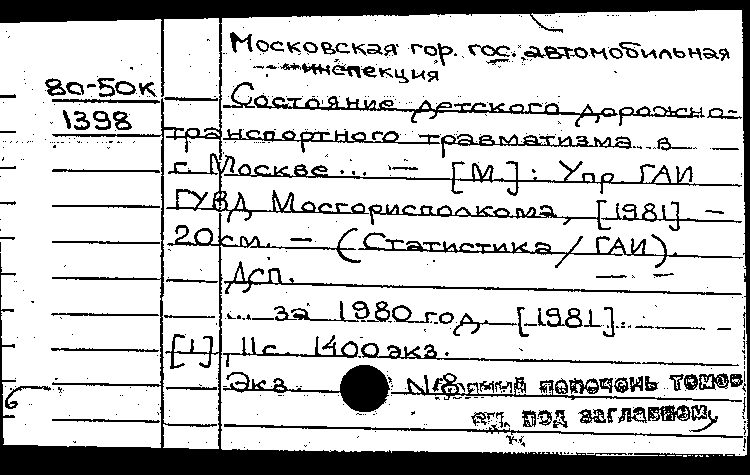 Московская гор. гос. автомобильная
инспекция
80-50К
Состояние детского дорожно-
1398
транспортного травматизма в
г. Москве... — [М.]: Упр ГАИ
ГУВД Мосгорисполкома, [1981] —
20 см. — (Статистика / ГАИ).
Дсп.
... за 1980 год. [1981].
[1], 11 с. 1400 экз.
Экз. N18 перечень томов
см. под заглавном,